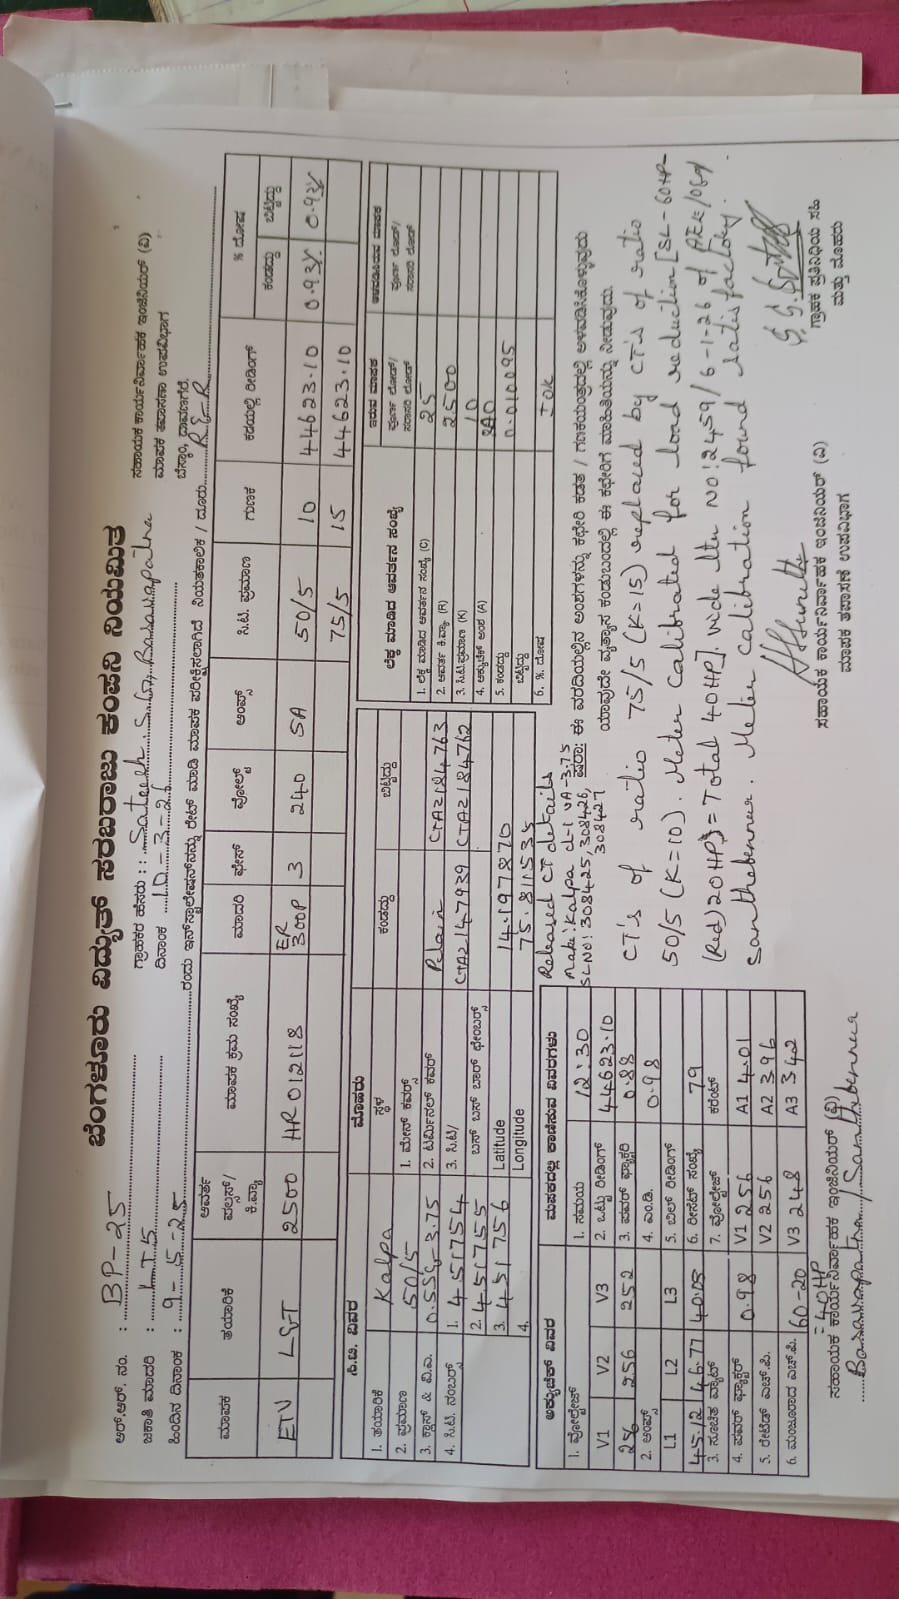 ಬೆಂಗಳೂರು ವಿದ್ಯುತ್ ಸರಬರಾಜು ಕಂಪನಿ ನಿಯಮಿತ
ಆರ್.ಆರ್. ನಂ. : BP-25
ಗ್ರಾಹಕರ ಹೆಸರು : : Sateesh
ಸಹಾಯಕ ಕಾರ್ಯನಿರ್ವಾಹಕ ಇಂಜಿನಿಯರ್ (ವಿ)
ಜಕಾತಿ ಮಾದರಿ : LT5
ದಿನಾಂಕ 10-3-26
ಮಾಪಕ ತಪಾಸಣಾ ಉಪವಿಭಾಗ
ಹಿಂದಿನ ದಿನಾಂಕ : 9-5-25
ಬೆಸ್ಕಾಂ, ದಾವಣಗೆರೆ.
ರಂದು ಇನ್‌ಸ್ಟಾಲೇಷನ್‌ನನ್ನು ರೇಟ್ ಮಾಡಿ ಮಾಪಕ ಪರೀಕ್ಷಿಸಲಾಗಿದೆ ನಿಯತಕಾಲಿಕ / ದೂರು
ಮಾಪಕ ತಯಾರಿಕೆ ಆವರ್ತ ಪಲ್ಸಸ್/ ಕಿ.ವ್ಯಾ ಮಾಪಕ ಕ್ರಮ ಸಂಖ್ಯೆ ಮಾದರಿ ಫೇಸ್ ವೋಲ್ಟ್ ಆಂಪ್ಸ್ ಸಿ.ಟಿ. ಪ್ರಮಾಣ ಗುಣಕ ಕಡೆಯಲ್ಲಿ ರೀಡಿಂಗ್ % ದೋಷ ಕಂಡದ್ದು ಬಿಟ್ಟಿದ್ದು
ETV L&T 2500 HR012118 ER 300P 3 240 5A 50/5 10 44623.10 0.93% 0.93%
75/5 15 44623.10
ಸಿ.ಟಿ. ವಿವರ
1. ತಯಾರಿಕೆ Kalpa
2. ಪ್ರಮಾಣ 50/5
3. ಕ್ಲಾಸ್ & ವಿ.ಎ. 3.75
4. ಸಿ.ಟಿ. ನಂಬರ್ಸ್ 1. 451754
2. 451755
3. 451756
4.
ಮೊಹರು
ಸ್ಥಳ ಕಂಡದ್ದು ಬಿಟ್ಟದ್ದು
1. ಮೇನ್ ಕವರ್
2. ಟರ್ಮಿನಲ್ ಕವರ್
3. ಸಿ.ಟಿ/
ಬಸ್ ಬಸ್ ಬಾರ್ ಛೇಂಬರ್ಸ್
Latitude 14.197870
Longitude 75.811535
ಲೆಕ್ಕ ಮಾಡಿದ ಆವರ್ತನ ಸಂಖ್ಯೆ ಇರುವ ಮಾಪಕ
1. ಲೆಕ್ಕ ಮಾಡಿದ ಆವರ್ತನ ಸಂಖ್ಯೆ (C) 25
2. ಆವರ್ತ ಕಿ.ವ್ಯಾ (R) 2500
3. ಸಿ.ಟಿ.ಪ್ರಮಾಣ (K) 10
4. ಅಕ್ಯುಚೆಕ್ ಅಂಶ (A)
5. ಕಂಡದ್ದು 0.010095
ಬಿಟ್ಟದ್ದು
6. %. ದೋಷ
ಅಕ್ಯುಚೆಕ್ ವಿವರ
1. ವೋಲ್ಟೇಜ್
V1 V2 V3
256 256 252
2. ಆಂಪ್ಸ್
L1 L2 L3
45.12 46.77 40.05
3. ಸೂಚಿತ ವ್ಯಾಟ್
4. ಪವರ್ ಫ್ಯಾಕ್ಟರ್ 0.98
5. ರೇಟೆಡ್ ಎಚ್.ಪಿ.
6. ಮಂಜೂರಾದ ಎಚ್.ಪಿ. 60-20
=40HP
ಮಾಪಕದಲ್ಲಿ ಕಾಣಿಸುವ ವಿವರಗಳು
1. ಸಮಯ 12:30
2. ಒಟ್ಟು ರೀಡಿಂಗ್ 44623.10
3. ಪವರ್ ಫ್ಯಾಕ್ಟರಿ 0.88
4. ಎಂ.ಡಿ. 0.98
5. ಬಿಲ್ ರೀಡಿಂಗ್
6. ರೀಸೆಟ್ ಸಂಖ್ಯೆ 79
7. ವೋಲ್ಟೇಜ್ ಕರಂಟ್
V1 256 A1 4.01
V2 256 A2 3.96
V3 248 A3 3.42
Released CT details
Make: Kalpa cl-1 VA-3.75
SLNo: 308425, 308426,
308427
ಷರಾ: ಈ ವರದಿಯಲ್ಲಿನ ಅಂಶಗಳನ್ನು ಕಛೇರಿ ಕಡತ / ಗಣಕಯಂತ್ರದಲ್ಲಿ ಅಳವಡಿಸಿಕೊಳ್ಳುವುದು
ಯಾವುದೇ ವ್ಯತ್ಯಾಸ ಕಂಡುಬಂದಲ್ಲಿ ಈ ಕಛೇರಿಗೆ ಮಾಹಿತಿಯನ್ನು ನೀಡುವುದು.
CT's of ratio 75/5 (K=15) replaced by CT's of ratio
50/5 (K=10). Meter Calibrated for load reduction [SL-60HP-
(Red) 20HP) = Total 40HP]. vide lttr NO: 2459/6-1-26 of
Santhebennur. Meter Calibration found satisfactory.
ಸಹಾಯಕ ಕಾರ್ಯನಿರ್ವಾಹಕ ಇಂಜಿನಿಯರ್ (ವಿ)
Basavapatna / Santhebennur
ಸಹಾಯಕ ಕಾರ್ಯನಿರ್ವಾಹಕ ಇಂಜಿನಿಯರ್ (ವಿ)
ಮಾಪಕ ತಪಾಸಣೆ ಉಪವಿಭಾಗ
ಗ್ರಾಹಕ ಪ್ರತಿನಿಧಿಯ ಸಹಿ
ಮತ್ತು ಮೊಹರು